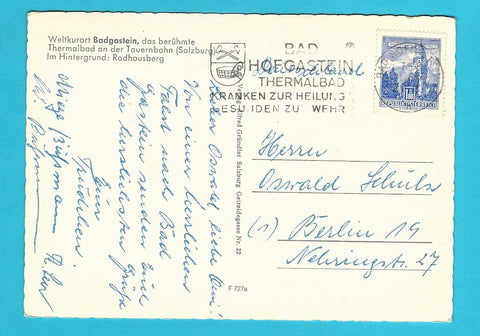 Weltkurort Badgastein, das berühmte
Thermalbad an der Tauernbahn (Salzburg)
Im Hintergrund: Radhausberg
BAD
HOFGASTEIN
THERMALBAD
KRANKEN ZUR HEILUNG
GESUNDEN ZUR WEHR
REPUBLIK ÖSTERREICH
Verlag Alfred Gründler Salzburg Getreidegasse Nr. 22
F 727a
Lieber Oswald, liebe
Von einer herrlichen
Fahrt nach Bad
Gastein senden Euch
die herzlichsten Grüße
Eure
Herrn
Oswald Schulz
(1) Berlin 19
Nehringstr. 27